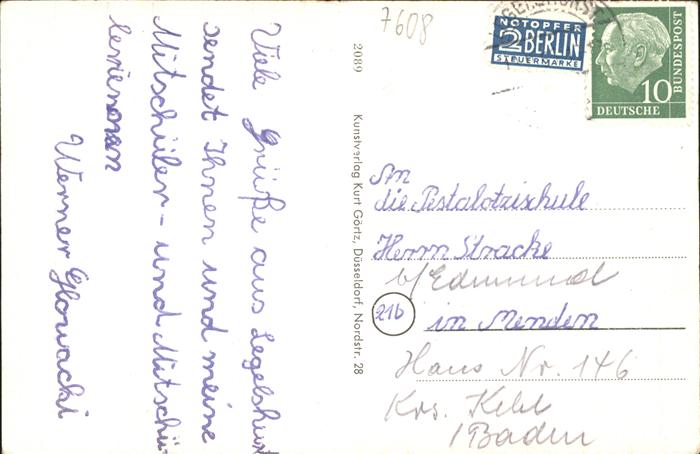 7608
NOTOPFER
2 BERLIN
STEUERMARKE
10
DEUTSCHE
BUNDESPOST
Viele Grüße aus Legelshurst
sendet Ihnen und meine
Mitschüler - und Mitschü-
lerienenen
Werner Glowacki
2089
Kunstverlag Kurt Görtz, Düsseldorf, Nordstr. 28
An
die Pestalotzischule
Herrn Stracke
b/ Edmund
21b
in Menden
Haus Nr. 146
Krs. Kehl
/Baden